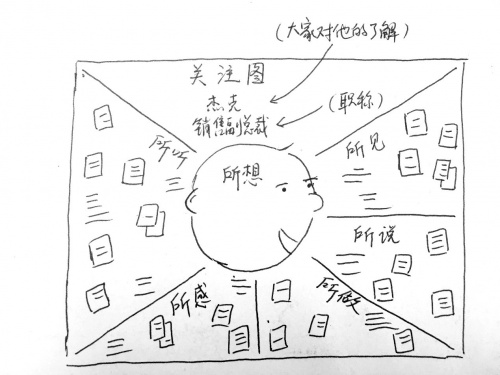 (大家对他的了解)
关注图
杰克
销售副总裁
(职称)
所听
所想
所见
所说
所感
所做